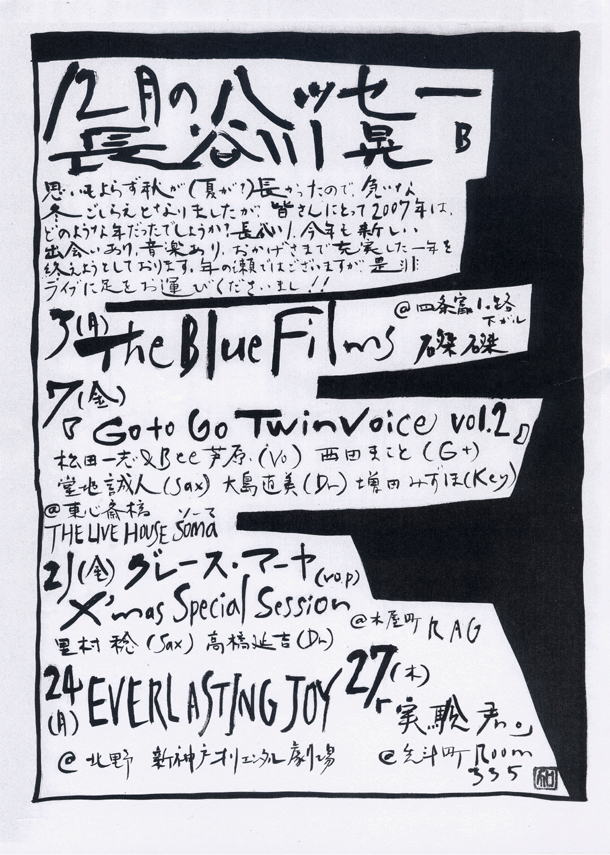 12月の八ッセー
長谷川晃 B
思いもよらず秋が(夏が?)長かったので、急いな
冬ごしらえとなりましたが、皆さんにとって2007年は、
どのような年だったでしょうか?長谷川、今年も新しい
出会いあり、音楽あり、おかげさまで充実した一年を
終えようとしております。年の瀬ではございますが、是非
ライブに足をお運びくださいまし!!
3(月) The Blue Films
@四条富小路
下がル
磔磔
7(金)
『Go to Go Twin Voice vol.2』
松田一志&Bee芦原(Vo) 西田まこと(Gt)
堂地誠人(Sax) 大島直美(Dr) 増田みずほ(Key)
@東心斎橋 ソーマ
THE LIVE HOUSE Soma
21(金) グレース・マーヤ(vo.p)
X'mas Special Session
@木屋町 RAG
里村稔(Sax) 高橋延吉(Dr)
24(月) EVERLASTING JOY
@北野 新神戸オリエンタル劇場
27(木)
「実験君。」
@先斗町 Room
335